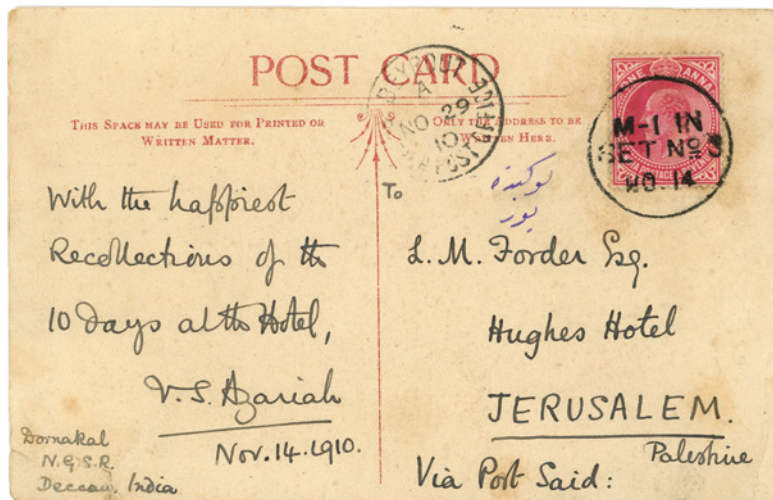 POST CARD
THIS SPACE MAY BE USED FOR PRINTED OR
WRITTEN MATTER.
ONLY THE ADDRESS TO BE
WRITTEN HERE.
BEYROUT
A
NO 29
10
BRITISH POST OFFICE
ONE ANNA
INDIA POSTAGE & REVENUE
M-1 IN
SET No 3
NO. 14
With the happiest
Recollections of the
10 Days at the Hotel,
V.S. Azariah
Nov. 14. 1910.
Dornakal
N.G.S.R.
Deccan, India
To
L. M. Forder Esq.
Hughes Hotel
JERUSALEM.
Palestine
Via Port Said: